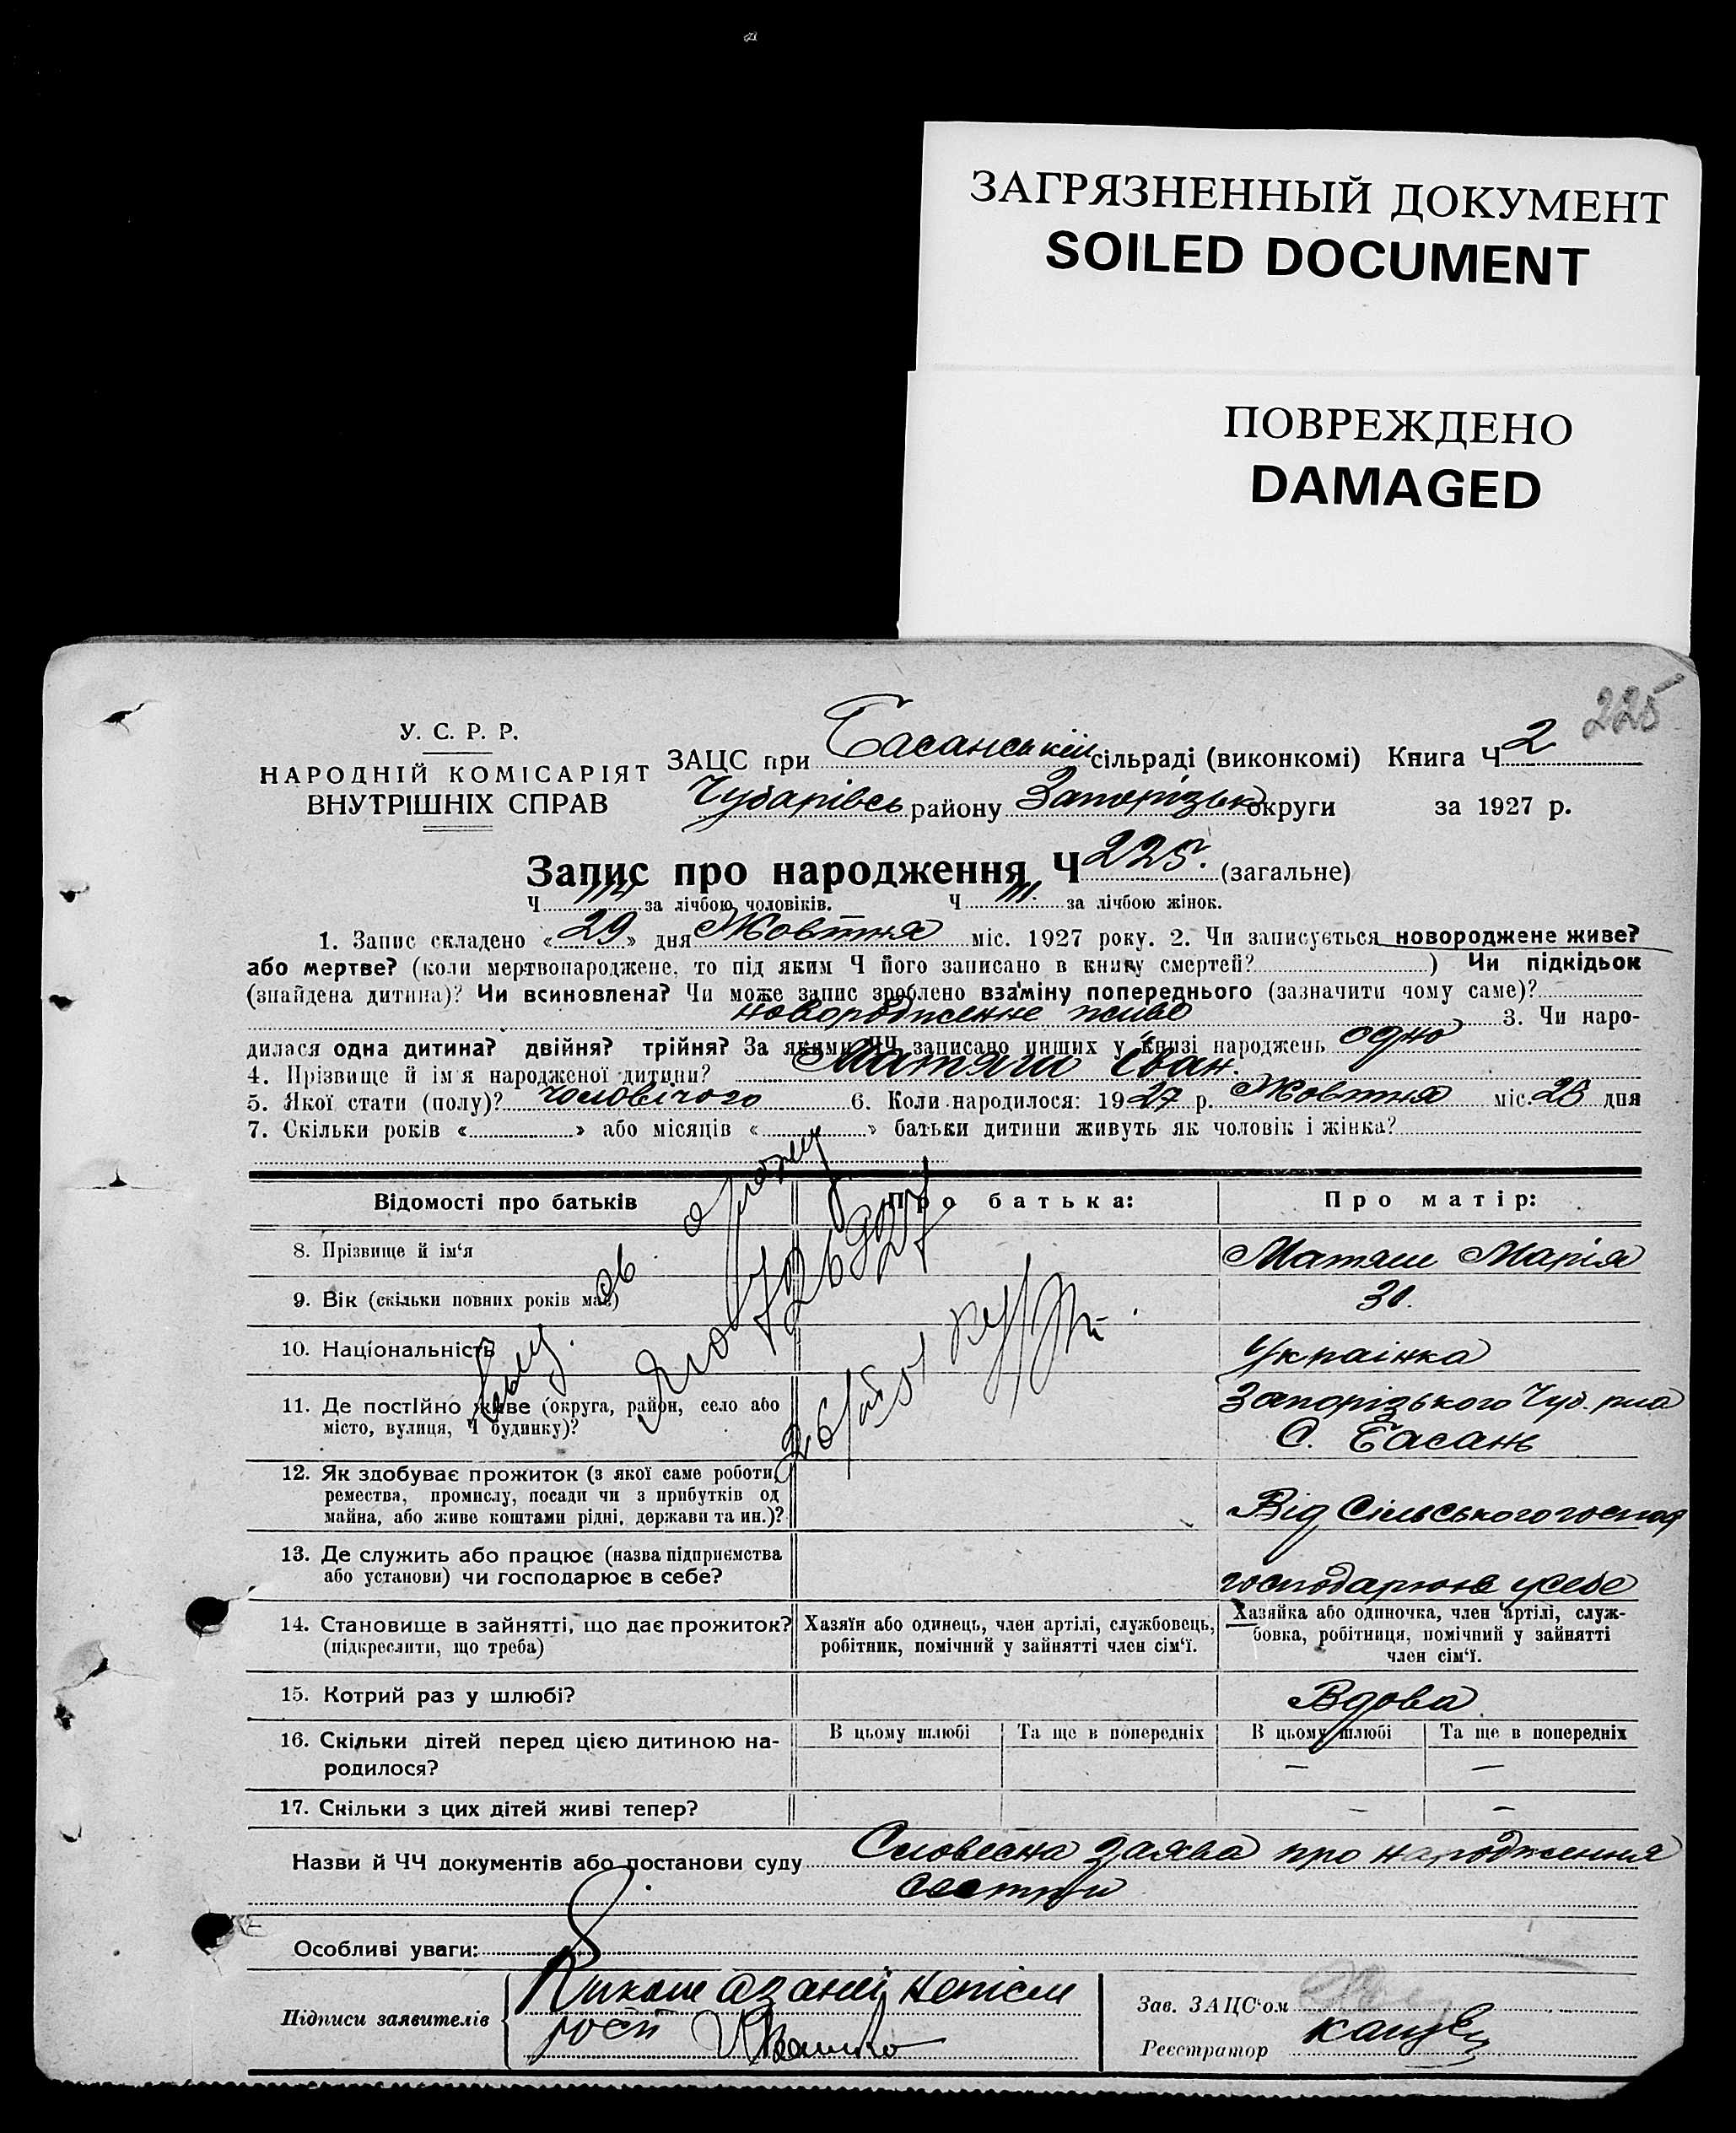 ЗАГРЯЗНЕННЫЙ ДОКУМЕНТ
SOILED DOCUMENT
ПОВРЕЖДЕНО
DAMAGED
225
У. С. Р. Р.
НАРОДНІЙ КОМІСАРІЯТ
ВНУТРІШНІХ СПРАВ
ЗАЦС при Басанській сільраді (виконкомі) Книга Ч 2
Чубарівсь району Запорізьк округи за 1927 р.
Запис про народження Ч 225. (загальне)
Ч 114 за лічбою чоловіків. Ч 111. за лічбою жінок.
1. Запис складено « 29 » дня Жовтня міс. 1927 року. 2. Чи записується новороджене живе?
або мертве? (коли мертвонароджене, то під яким Ч його записано в книгу смертей? ) Чи підкідьок
(знайдена дитина)? Чи всиновлена? Чи може запис зроблено взаміну попереднього (зазначити чому саме)?
новородженне живе 3. Чи наро-
дилася одна дитина? двійня? трійня? За якими ЧЧ записано инших у книзі народжень одно
4. Прізвище й ім'я народженої дитини? Матяш Іван.
5. Якої стати (полу)? чоловічого 6. Коли народилося: 1927 р. Жовтня міс. 25 дня
7. Скільки років « » або місяців « » батьки дитини живуть як чоловік і жінка?
Відомості про батьків Про батька: Про матір:
8. Прізвище й ім'я Матяш Марія
9. Вік (скільки повних років має) 30.
10. Національність Українка
11. Де постійно живе (округа, район, село або Запорізького Чуб. рна
місто, вулиця, Ч будинку)? С. Басань
12. Як здобуває прожиток (з якої саме роботи,
ремества, промислу, посади чи з прибутків од
майна, або живе коштами рідні, держави та ин.)? Від Сільського господ
13. Де служить або працює (назва підприємства
або установи) чи господарює в себе? господарює усебе
14. Становище в зайнятті, що дає прожиток? (підкреслити, що треба)
Хазяїн або одинець, член артілі, службовець, робітник, помічний у зайнятті член сім'ї.
Хазяйка або одиночка, член артілі, служ-
бовка, робітниця, помічний у зайнятті
член сім'ї.
15. Котрий раз у шлюбі? Вдова
16. Скільки дітей перед цією дитиною на-
родилося?
В цьому шлюбі Та ще в попередніх В цьому шлюбі Та ще в попередніх
— —
17. Скільки з цих дітей живі тепер? — —
Назви й ЧЧ документів або постанови суду Словесна заява про народження
сестри
Особливі уваги:
Підписи заявителів
Зав. ЗАЦС'ом
Реєстратор